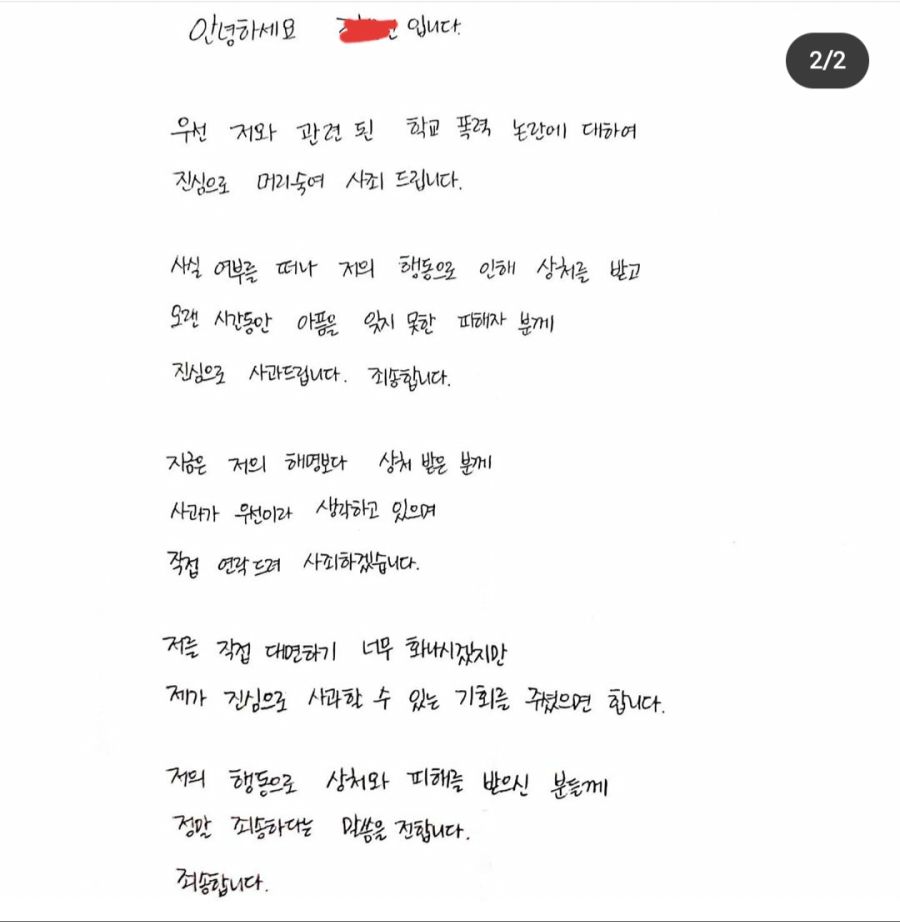 안녕하세요 입니다.
2/2
우선 저와 관련 된 학교 폭력 논란에 대하여
진심으로 머리숙여 사죄 드립니다.
사실 여부를 떠나 저의 행동으로 인해 상처를 받고
오랜 시간동안 아픔을 잊지 못한 피해자 분께
진심으로 사과드립니다. 죄송합니다.
지금은 저의 해명보다 상처 받은 분께
사과가 우선이라 생각하고 있으며
직접 연락드려 사죄하겠습니다.
저를 직접 대면하기 너무 화나시겠지만
제가 진심으로 사과할 수 있는 기회를 주셨으면 합니다.
저의 행동으로 상처와 피해를 받으신 분들께
정말 죄송하다는 말씀을 전합니다.
죄송합니다.